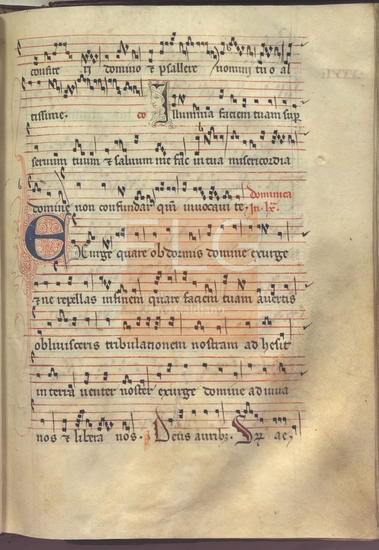 confite ri domino & psallere nomini tuo al
tissime. co Illumina faciem tuam sup
servum tuum & salvum me fac in tua misericordia
domine non confundar qm invocavi te. dominica in lx.
Exurge quare obdormis domine exurge
& ne repellas in finem quare faciem tuam avertis
oblivisceris tribulationem nostram adhesit
in terra venter noster exurge domine adiuva
nos & libera nos. Deus auribz.